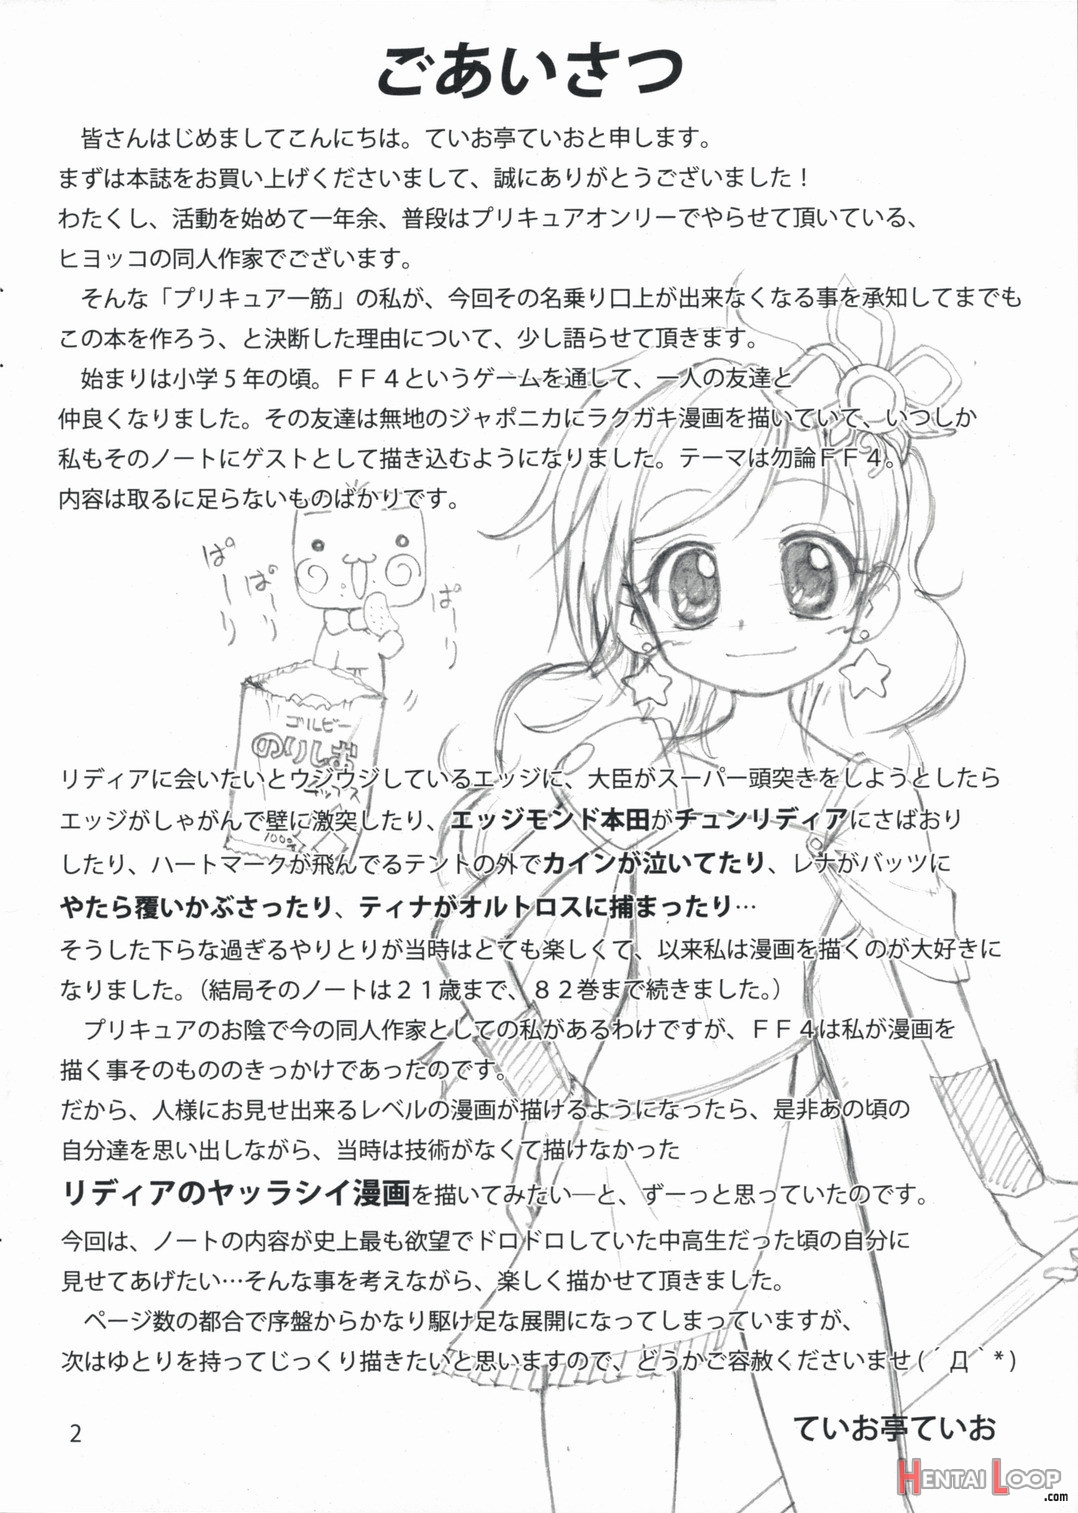 ごあいさつ
皆さんはじめましてこんにちは。ていお亭ていおと申します。
まずは本誌をお買い上げくださいまして、誠にありがとうございました！
わたくし、活動を始めて一年余、普段はプリキュアオンリーでやらせて頂いている、
ヒヨッコの同人作家でございます。
そんな「プリキュア一筋」の私が、今回その名乗り口上が出来なくなる事を承知してまでも
この本を作ろう、と決断した理由について、少し語らせて頂きます。
始まりは小学５年の頃。ＦＦ４というゲームを通して、一人の友達と
仲良くなりました。その友達は無地のジャポニカにラクガキ漫画を描いていて、いつしか
私もそのノートにゲストとして描き込むようになりました。テーマは勿論ＦＦ４。
内容は取るに足らないものばかりです。
ぱーり
ぱーり
ぱーり
ゴルビー
のりしお
チップス
100g
リディアに会いたいとウジウジしているエッジに、大臣がスーパー頭突きをしようとしたら
エッジがしゃがんで壁に激突したり、エッジモンド本田がチュンリディアにさばおり
したり、ハートマークが飛んでるテントの外でカインが泣いてたり、レナがバッツに
やたら覆いかぶさったり、ティナがオルトロスに捕まったり…
そうした下らな過ぎるやりとりが当時はとても楽しくて、以来私は漫画を描くのが大好きに
なりました。（結局そのノートは２１歳まで、８２巻まで続きました。）
プリキュアのお陰で今の同人作家としての私があるわけですが、ＦＦ４は私が漫画を
描く事そのもののきっかけであったのです。
だから、人様にお見せ出来るレベルの漫画が描けるようになったら、是非あの頃の
自分達を思い出しながら、当時は技術がなくて描けなかった
リディアのヤッラシイ漫画を描いてみたい―と、ずーっと思っていたのです。
今回は、ノートの内容が史上最も欲望でドロドロしていた中高生だった頃の自分に
見せてあげたい…そんな事を考えながら、楽しく描かせて頂きました。
ページ数の都合で序盤からかなり駆け足な展開になってしまっていますが、
次はゆとりを持ってじっくり描きたいと思いますので、どうかご容赦くださいませ(´Д｀*)
ていお亭ていお
2
HENTAI LOOP
.com